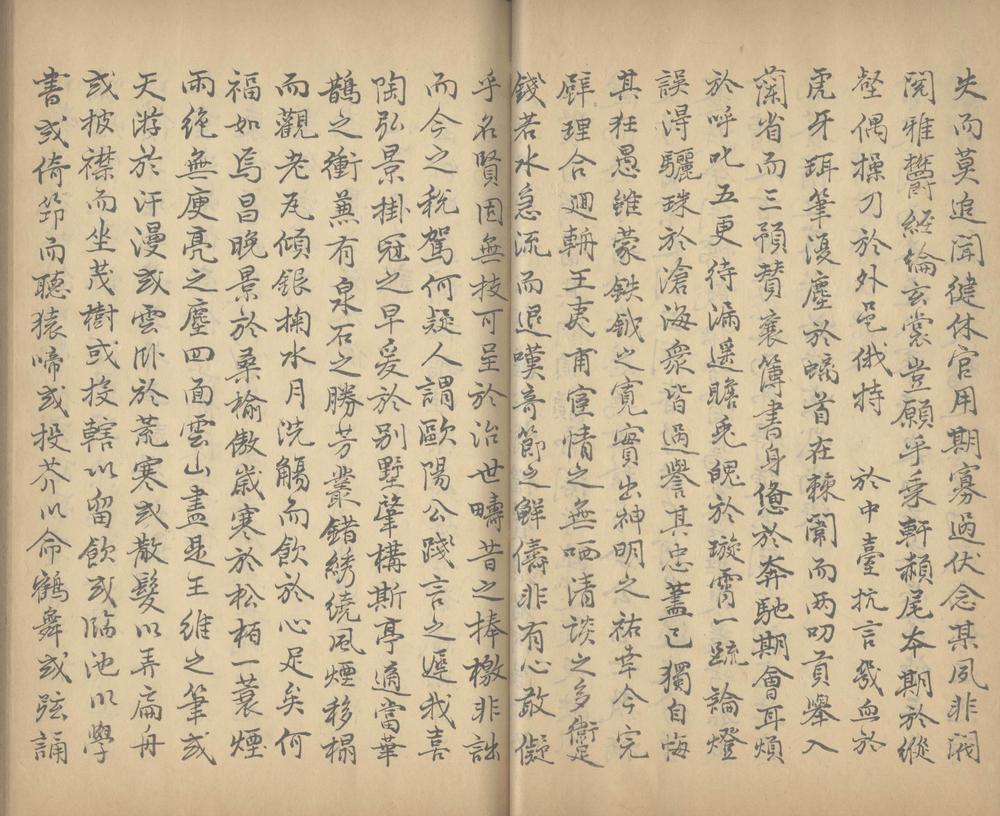 失而莫追聞健休官用期寡過伏念某夙非閥
閱雅鬱經綸玄裳豈願乎乗軒赬尾本期於縱
壑偶操刀於外邑俄持於中臺抗言幾血於
虎牙珥筆濅塵於螭首在棘闈而兩叨貢舉入
蘭省而三預賛襄簿書身憊於奔馳期會耳煩
於呼叱五更待漏遥瞻兎魄於璇霄一疏論燈
誤淂驪珠於滄海衆皆過譽其忠藎已獨自悔
其狂愚雖蒙鈇鉞之寛實出神明之祐幸今完
璧理合廻輈王夷甫宦情之無哂清談之多衛足
錢若水急流而退嘆竒節之鮮儔非有心敢儗
乎名賢因無技可呈於治世疇昔之捧檄非詘
而今之税駕何疑人謂歐陽公踐言之遲我喜
陶弘景掛冠之早爰於别墅肇構斯亭適當華
鵲之衝蒹有泉石之勝芳叢錯綉繞風煙移榻
而觀老瓦傾銀掬水月洗觴而飲於心足矣何
福如焉昌晚景於桑榆傲嵗寒於松柏一蓑煙
雨絶無庾亮之塵四面雲山盡是王維之筆或
天游於汗漫或雲卧於荒寒或散髮以弄扁舟
或披襟而坐茂樹或投轄以留飲或臨池以學
書或倚筇而聽猿啼或投芥以命鶴舞或弦誦